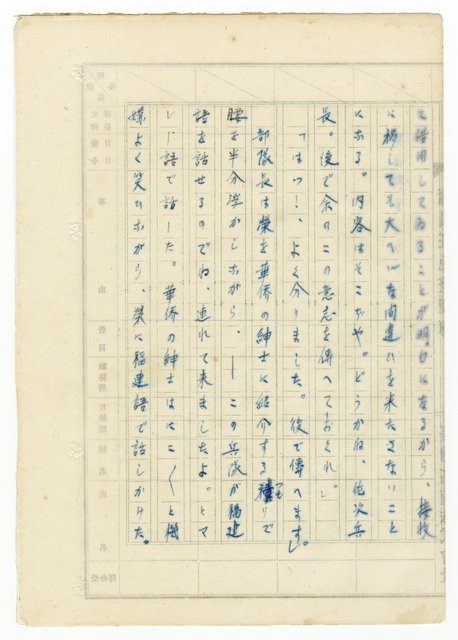 と借用してゐることが明白になるから、接收
に移しても大へんな間違ひを来たさないこと
にある。内容はそこぢや。どうかね、兵
長。後で余のこの意志を傳へておくれ」
「はツ！、よく分りました。後で傳へます」
部隊長は葉を華僑の紳士に紹介する積りで
腰を半分浮かしながら、——この兵隊が福建
語を話せるのでね、連れて来ましたよ。とマ
レー語で話した。華僑の紳士はにこ〳〵と機
嫌よく笑ひながら、葉に福建語で話しかけた。